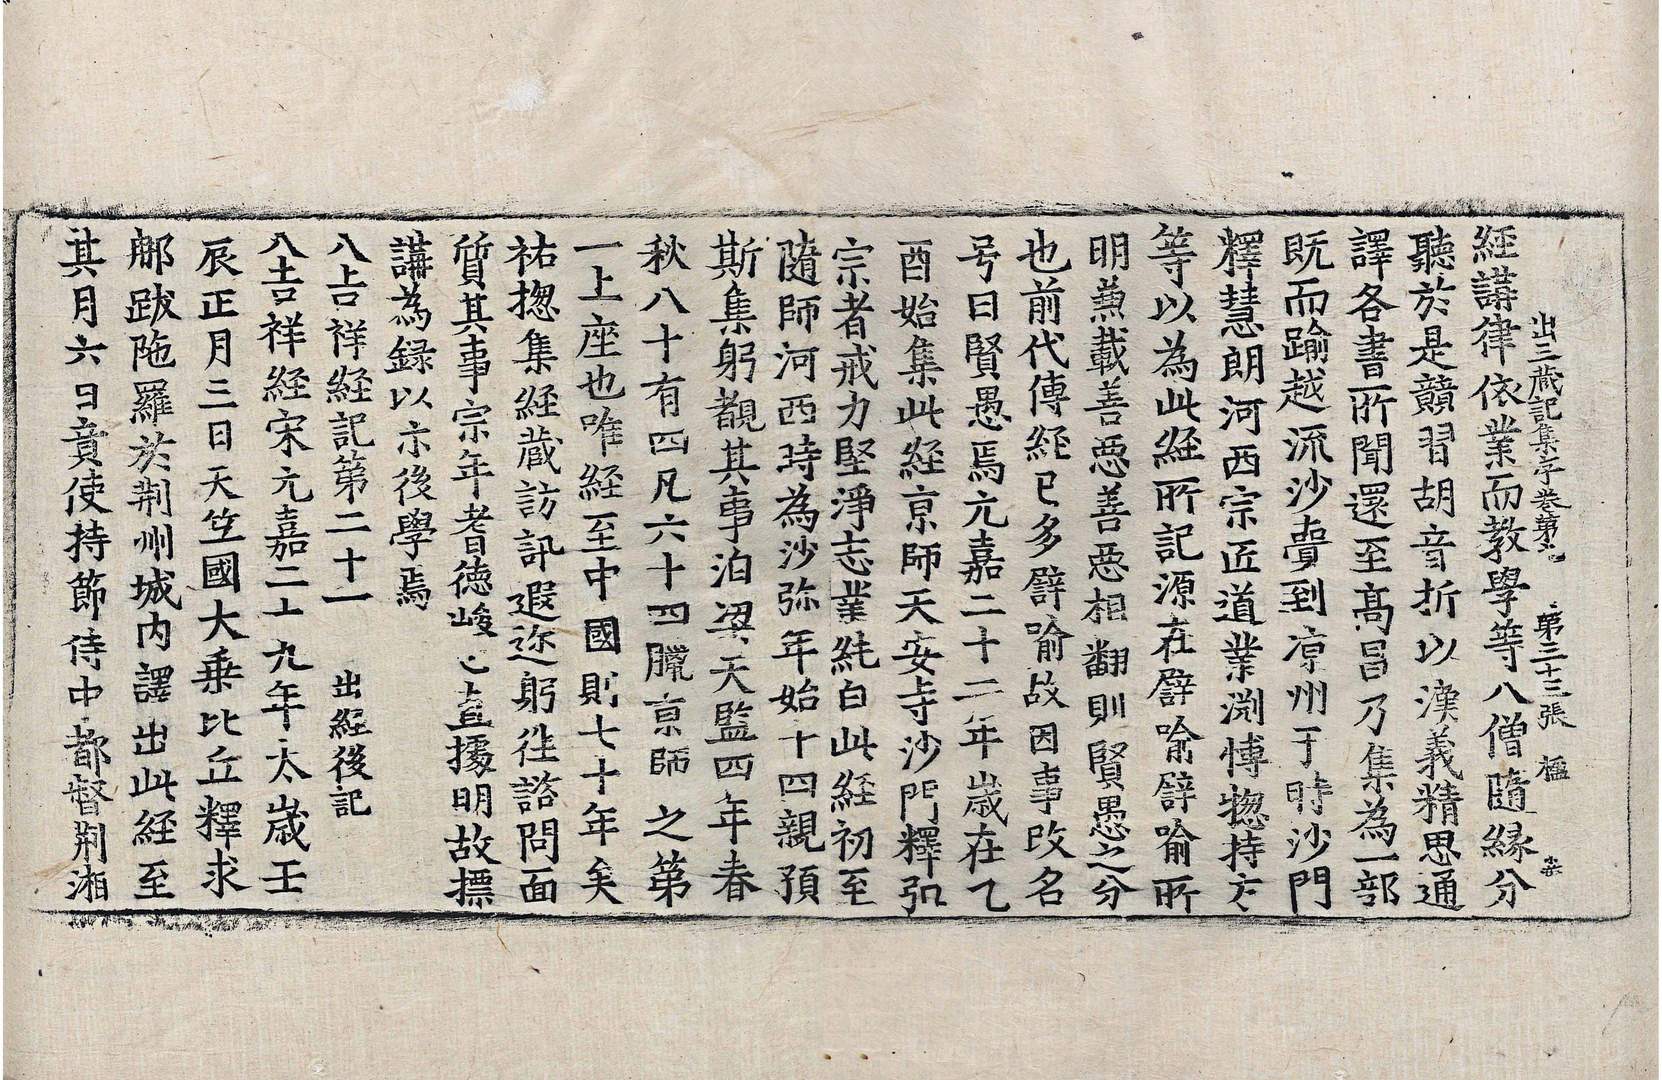 出三藏記集序卷第九 第三十三張 楹
經講律依業而教學等八僧隨緣分
聽於是競習胡音折以漢義精思通
譯各書所聞還至高昌乃集為一部
既而踰越流沙賷到凉州于時沙門
釋慧朗河西宗匠道業渊博揔持方
等以為此經所記源在譬喻譬喻所
明兼載善惡善惡相翻則賢愚之分
也前代傳經已多譬喻故因事改名
号曰賢愚焉元嘉二十二年歲在乙
酉始集此經京師天安寺沙門釋弘
宗者戒力堅淨志業純白此經初至
隨師河西時為沙弥年始十四親預
斯集躬覩其事洎梁天監四年春
秋八十有四凡六十四臘京師之第
一上座也唯經至中國則七十年矣
祐揔集經藏訪訊遐迩躬往諮問面
質其事宗年耆德峻心直據明故標
講為録以示後學焉
八吉祥經記第二十一 出經後記
八吉祥經宋元嘉二十九年太歲壬
辰正月三日天竺國大乗比丘釋求
郍跋陁羅於荆州城内譯出此經至
其月六日竟使持節侍中都督荆湘